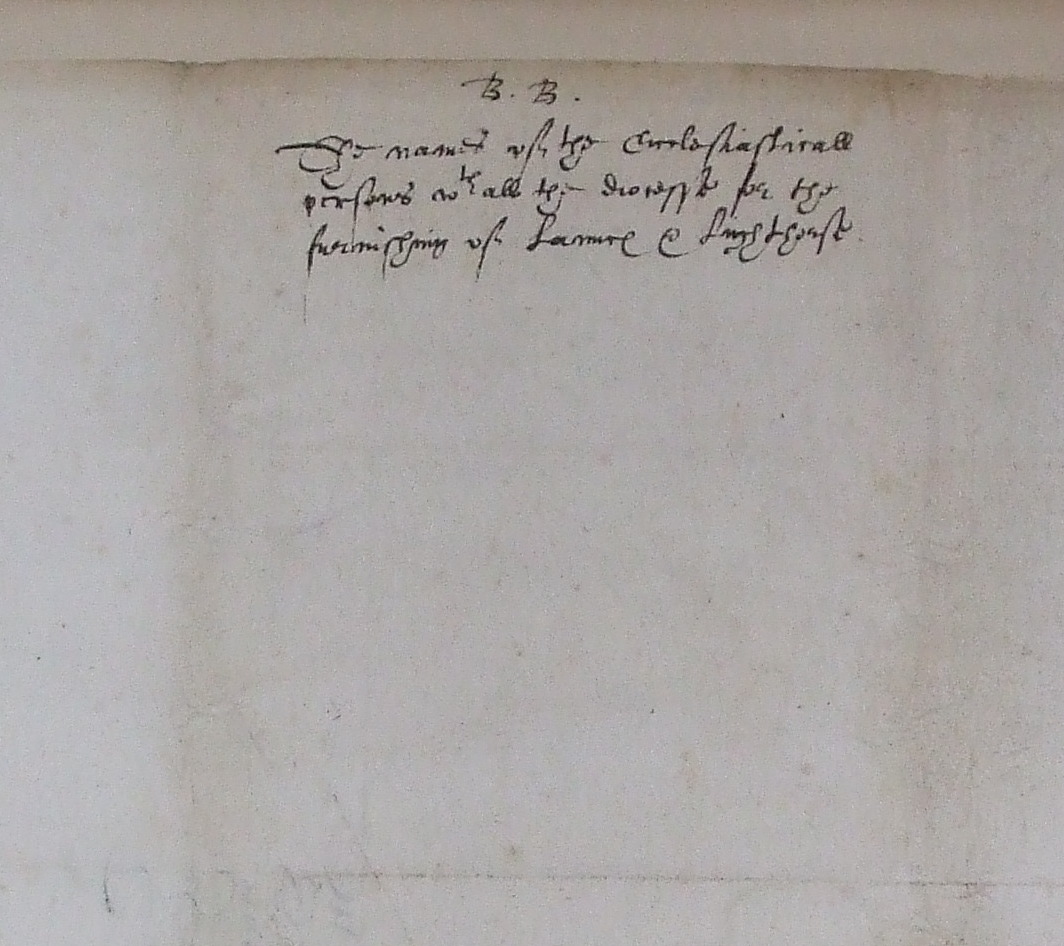 B. B.
The names of the Ecclesiasticall
persons wth all the diocesse for the
furnishing of Launce & Lyghthorse